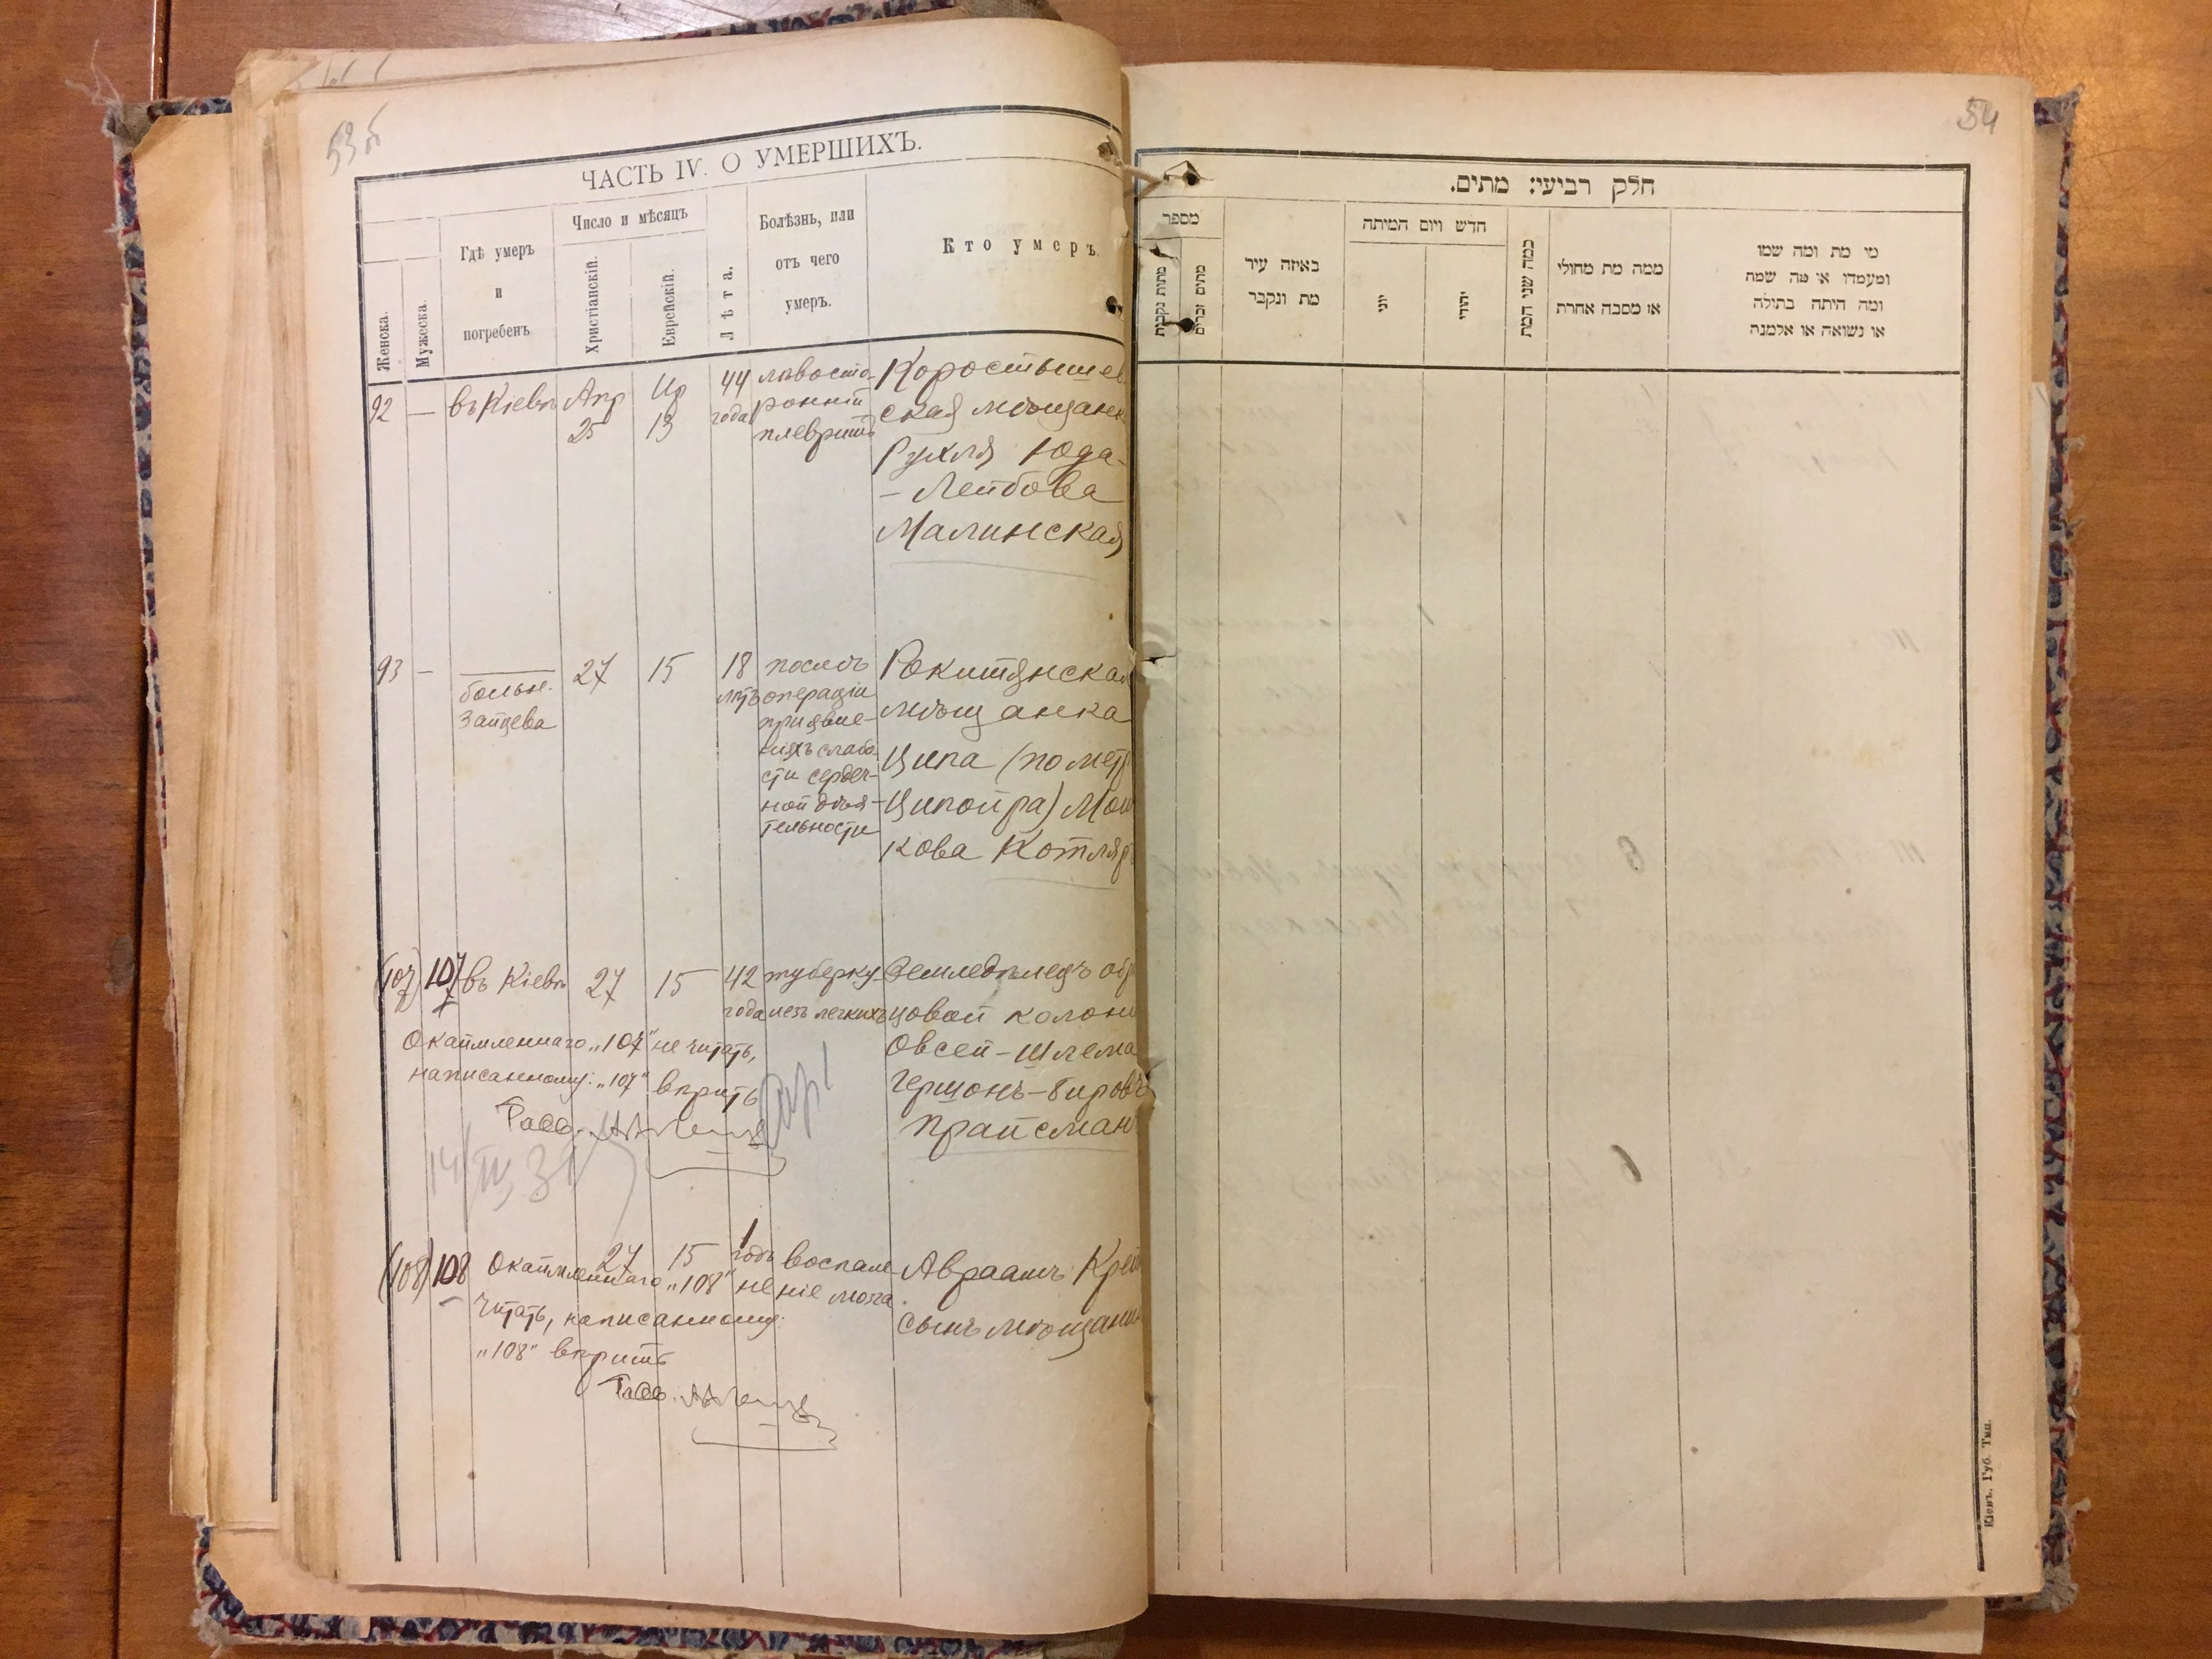 53б
ЧАСТЬ IV. О УМЕРШИХЪ.
Женска.
Мужеска.
Гдѣ умеръ
и
погребенъ
Число и мѣсяцъ
Христіанскій.
Еврейскій.
Лѣта.
Болѣзнь, или
отъ чего
умеръ.
Кто умеръ.
92 — въ Кіевѣ Апр 25 Ир 13 44 года
лѣвосто-
ронній
плевритъ
Коростышев
ская мѣщанк
Рухля Юда-
- Лейбова
Малинская
93 — больн. Зайцева 27 15 18 лѣтъ
послѣ
операціи
при явле-
ніяхъ слабо
сти сердеч-
ной дѣя-
тельности
Рокитянская
мѣщанка
Ципа (по метр
Ципойра) Мош
кова Котляр
(107) 107 въ Кіевѣ 27 15 42 года
туберку-
лезъ легкихъ
Земледѣлецъ обр
цовой колоні
Овсей-Шлема
Гершонъ-Бировъ
Прайсман
Окаймленнаго „107" не читать,
написанному: „107" вѣрить
Равв.
(108) 108 27 15 1 годъ
воспале-
ніе мозга
Авраамъ Крей
сынъ мѣщанин
Окаймленнаго „108" не
читать, написанному:
„108" вѣрить
Равв.
54
חלק רביעי: מתים.
מספר
מתות נקבות
מתים זכרים
באיזה עיר
מת ונקבר
חדש ויום המיתה
יוני
יהודי
כמה שני המת
ממה מת מחולי
או מסבה אחרת
מי מת ומה שמו
ומעמדו או מה שמה
ומה היתה בתולה
או נשואה או אלמנה
Кіевъ. Губ. Тип.